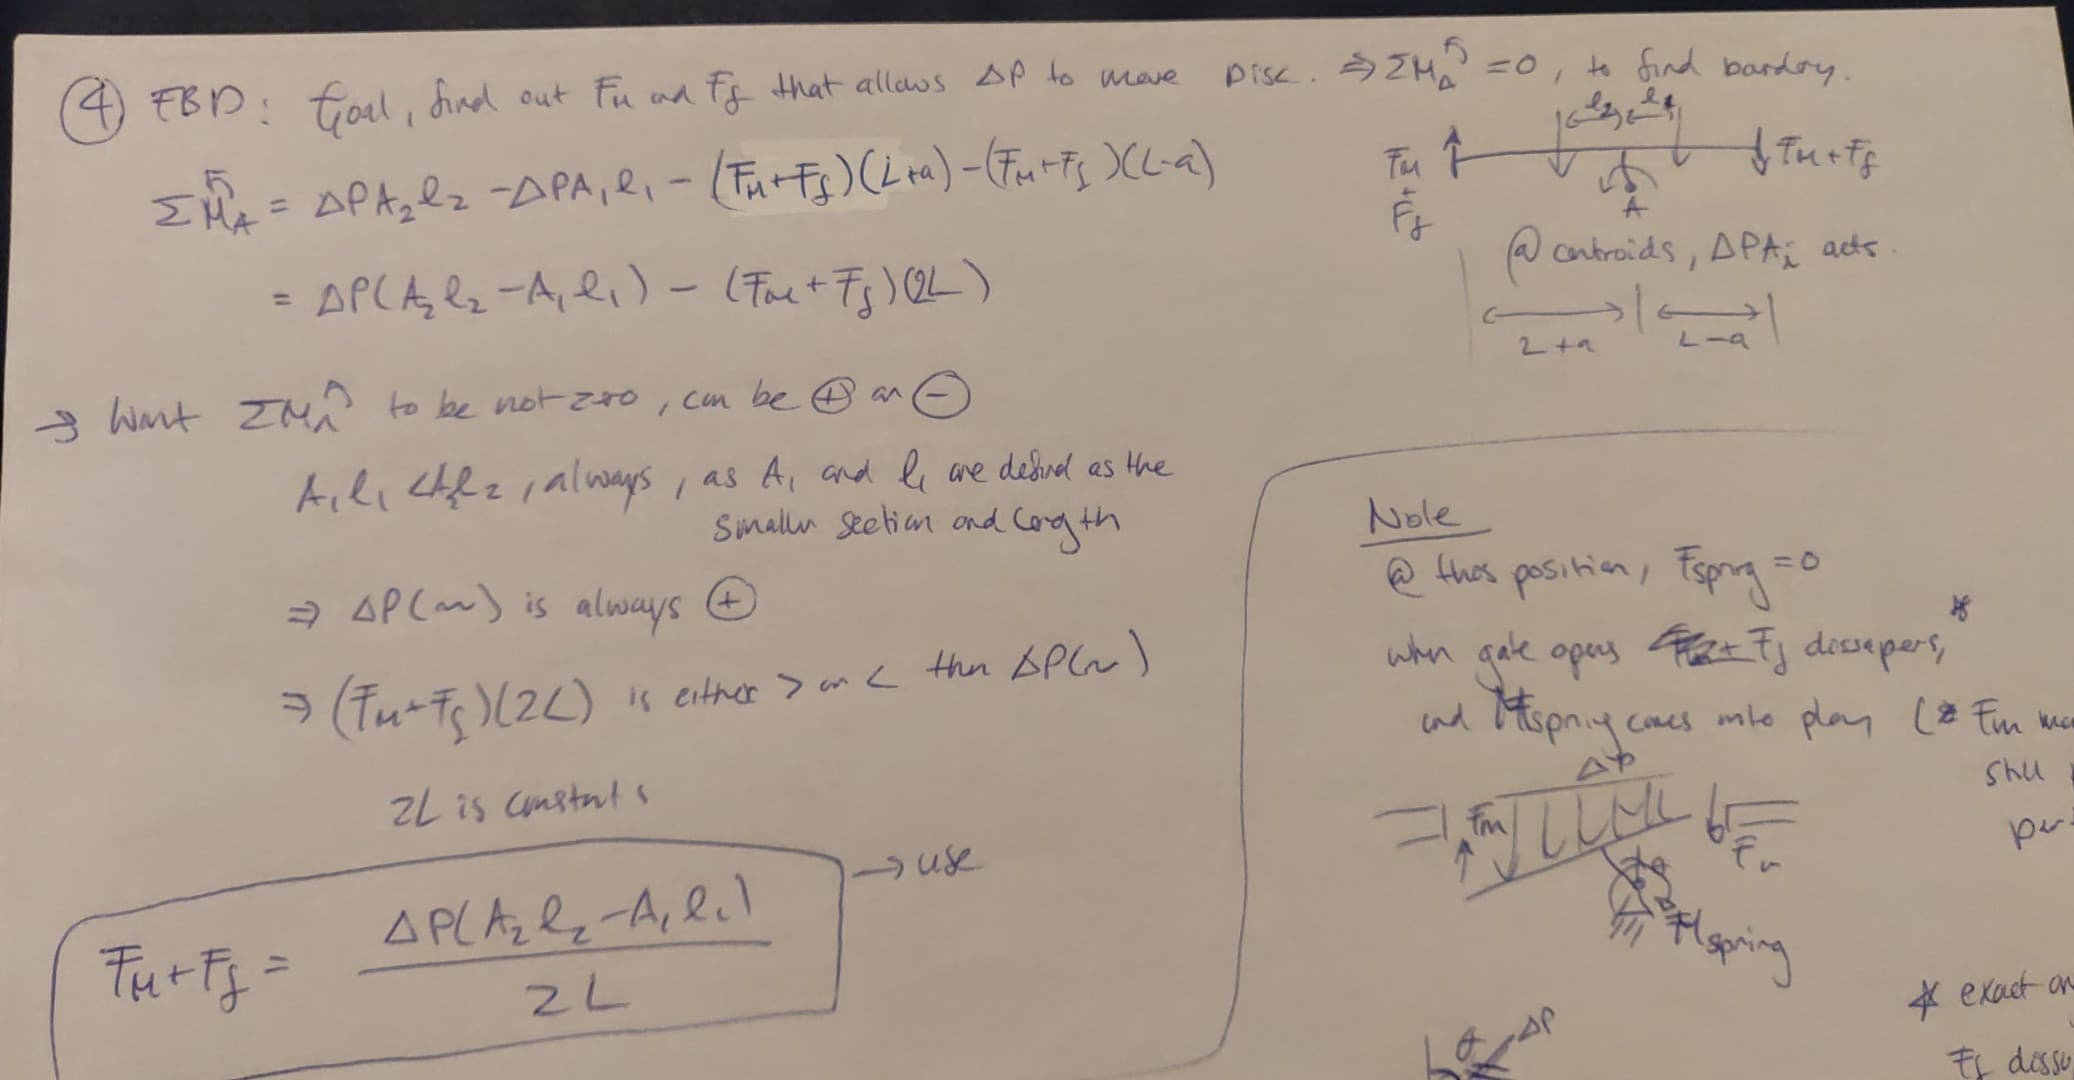 ④ FBD: Goal, find out Fμ and Ff that allows ΔP to move Disc. ⇒ ΣM_A = 0, to find bardry.
ΣM_A = ΔPA₂l₂ - ΔPA₁l₁ - (Fμ+Ff)(L+a) - (Fμ+Ff)(L-a)
= ΔP(A₂l₂ - A₁l₁) - (Fμ+Ff)(2L)
→ Want ΣM_A to be not zero, can be ⊕ or ⊖
A₁l₁ < A₂l₂, always, as A₁ and l₁ are defind as the
smaller section and length
⇒ ΔP(~) is always ⊕
⇒ (Fμ+Ff)(2L) is either > or < then ΔP(~)
2L is constant
Fμ+Ff = ΔP(A₂l₂ - A₁l₁) / 2L
→ use
l₂ l₁
Fμ + Ff
Fμ+Ff
A
@ centroids, ΔPAi acts.
L+a L-a
Note
@ thos position, Fspring = 0
when gate opens Ff dissapers,*
and Mspring comes into play (* Fm
still
ΔP
Fm
Fμ
Mspring
* exact
θ ΔP
Ff